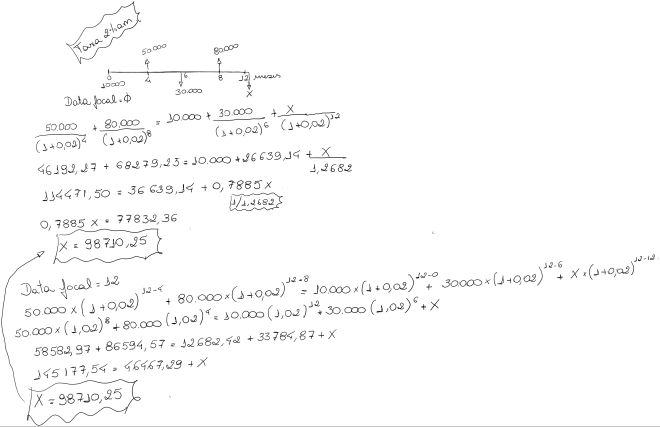 Taxa 2% am
50.000 80.000
0 4 6 8 12 meses
10.000 30.000 X
Data focal = 0
50.000/(1+0,02)^4 + 80.000/(1+0,02)^8 = 10.000 + 30.000/(1+0,02)^6 + X/(1+0,02)^12
46192,27 + 68279,23 = 10.000 + 26639,14 + X/1,2682
114471,50 = 36639,14 + 0,7885X
1/1,2682
0,7885 X = 77832,36
X = 98710,25
Data focal = 12
50.000 x (1+0,02)^12-4 + 80.000 x (1+0,02)^12-8 = 10.000 x (1+0,02)^12-0 + 30.000 x (1+0,02)^12-6 + X x (1+0,02)^12-12
50.000 x (1,02)^8 + 80.000 (1,02)^4 = 10.000 (1,02)^12 + 30.000 (1,02)^6 + X
58582,97 + 86594,57 = 12682,42 + 33784,87 + X
145177,54 = 46467,29 + X
X = 98710,25